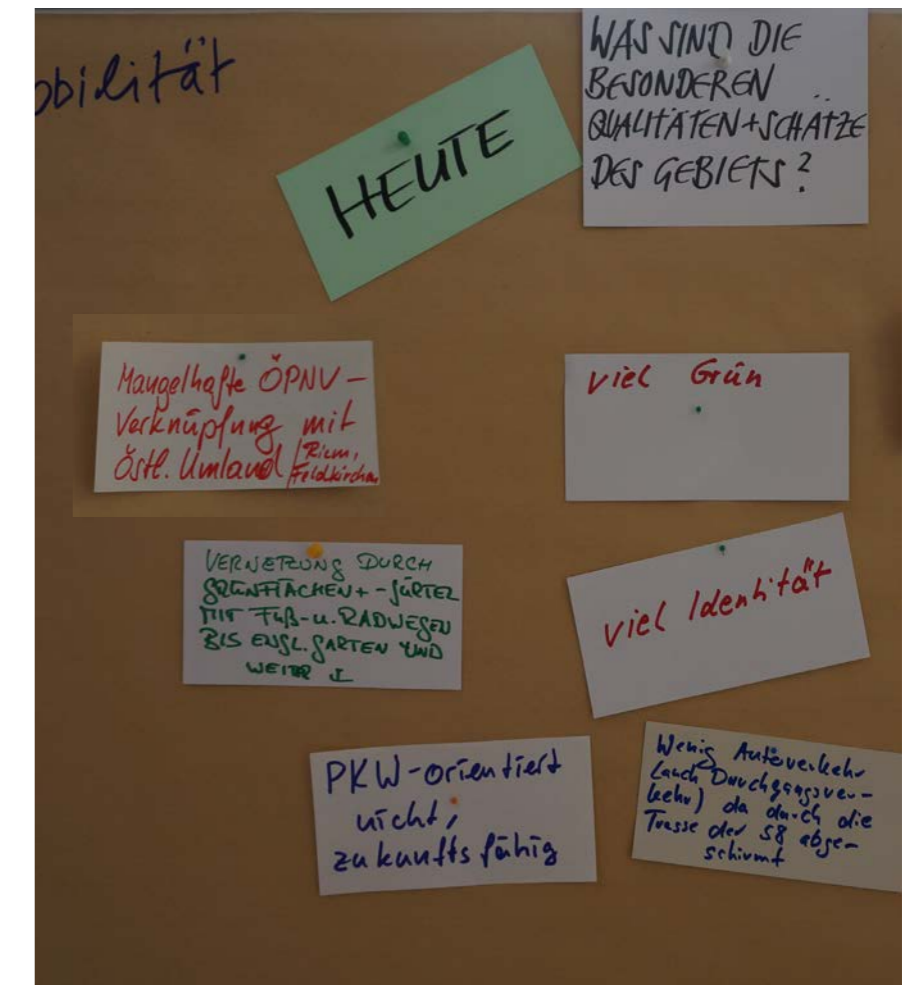 obilität
HEUTE
WAS SIND DIE
BESONDEREN
QUALITÄTEN+SCHÄTZE
DES GEBIETS?
Mangelhafte ÖPNV-
Verknüpfung mit
Östl. Umland / Riem,
Feldkirchen
viel Grün
VERNETZUNG DURCH
GRÜNFLÄCHEN + -GÜRTEL
MIT FUß- u. RADWEGEN
BIS ENGL. GARTEN UND
WEITER
viel Identität
PKW-orientiert
nicht
zukunftsfähig
Wenig Autoverkehr
(auch Durchgangsver-
kehr) da durch die
Trasse der S8 abge-
schirmt